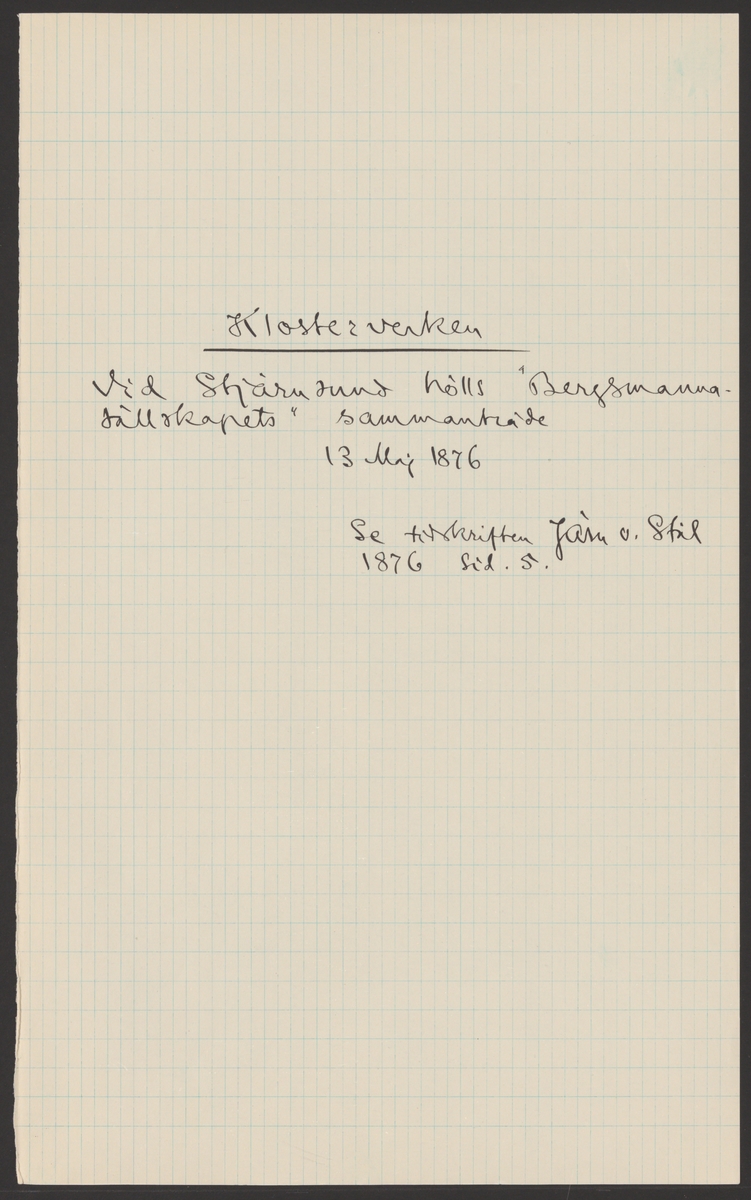 Klosterverken
Vid Stjärnsund hölls "Bergsmanna-
sällskapets" sammanträde
13 Maj 1876
Se tidskriften Järn o. Stål
1876 Sid. 5.